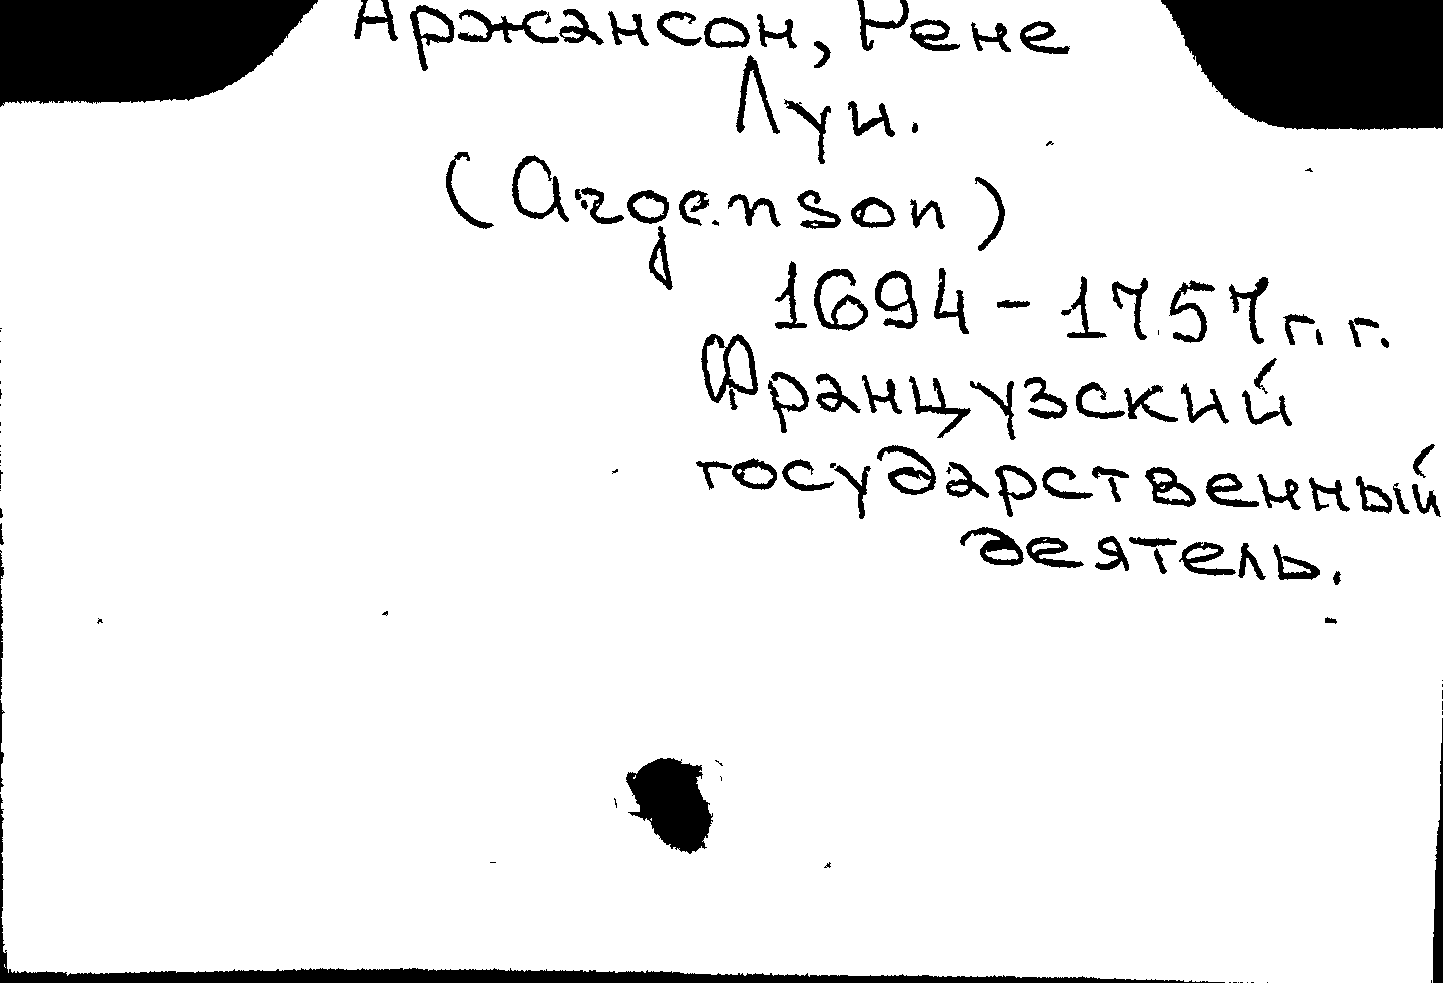 Аржансон, Рене
Луи.
(Argenson)
1694-1757 г. г.
Французский
государственный
деятель.